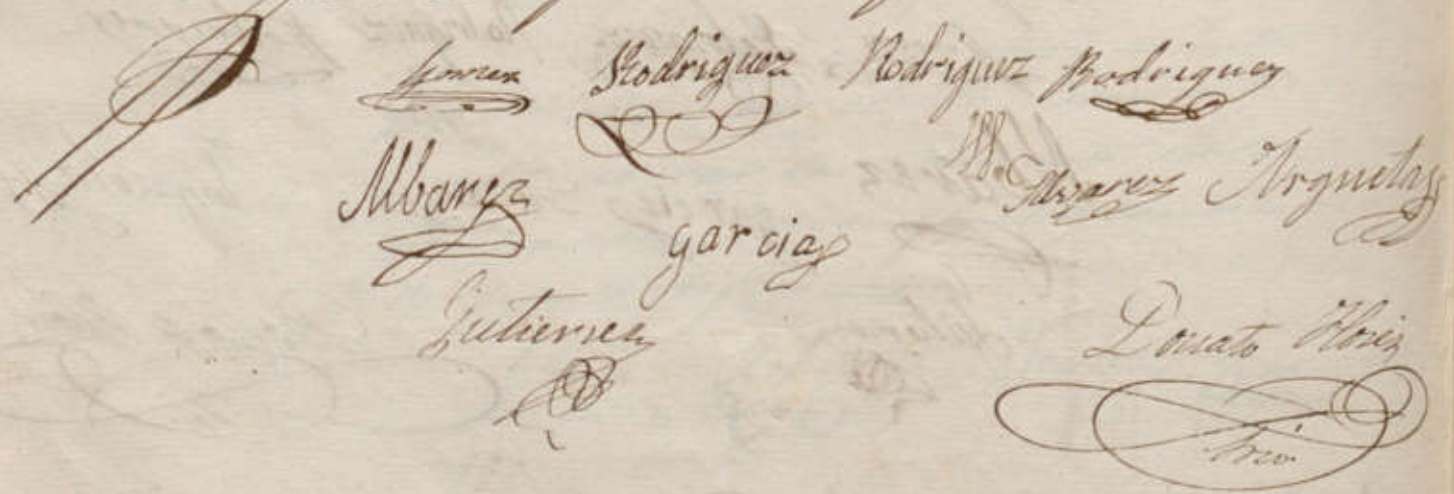 Gomez Rodriguez Rodriguez Rodriguez
Albarez Alvarez Arguetas
garcia
Gutierrez Donato Flores
Srio.